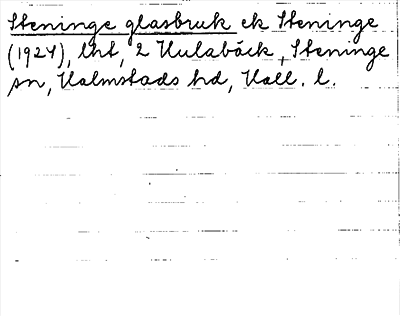 Steninge glasbruk ek Steninge
(1924), lht, 2 Kulabäck, Steninge
sn, Halmstads hd, Hall. l.